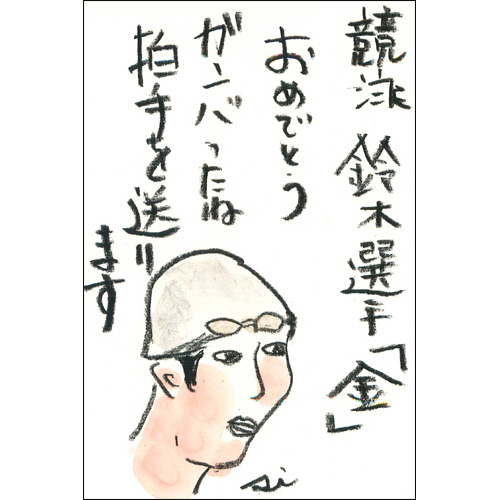 競泳 鈴木選手「金」
おめでとう
ガンバったね
拍手を送り
ます
si